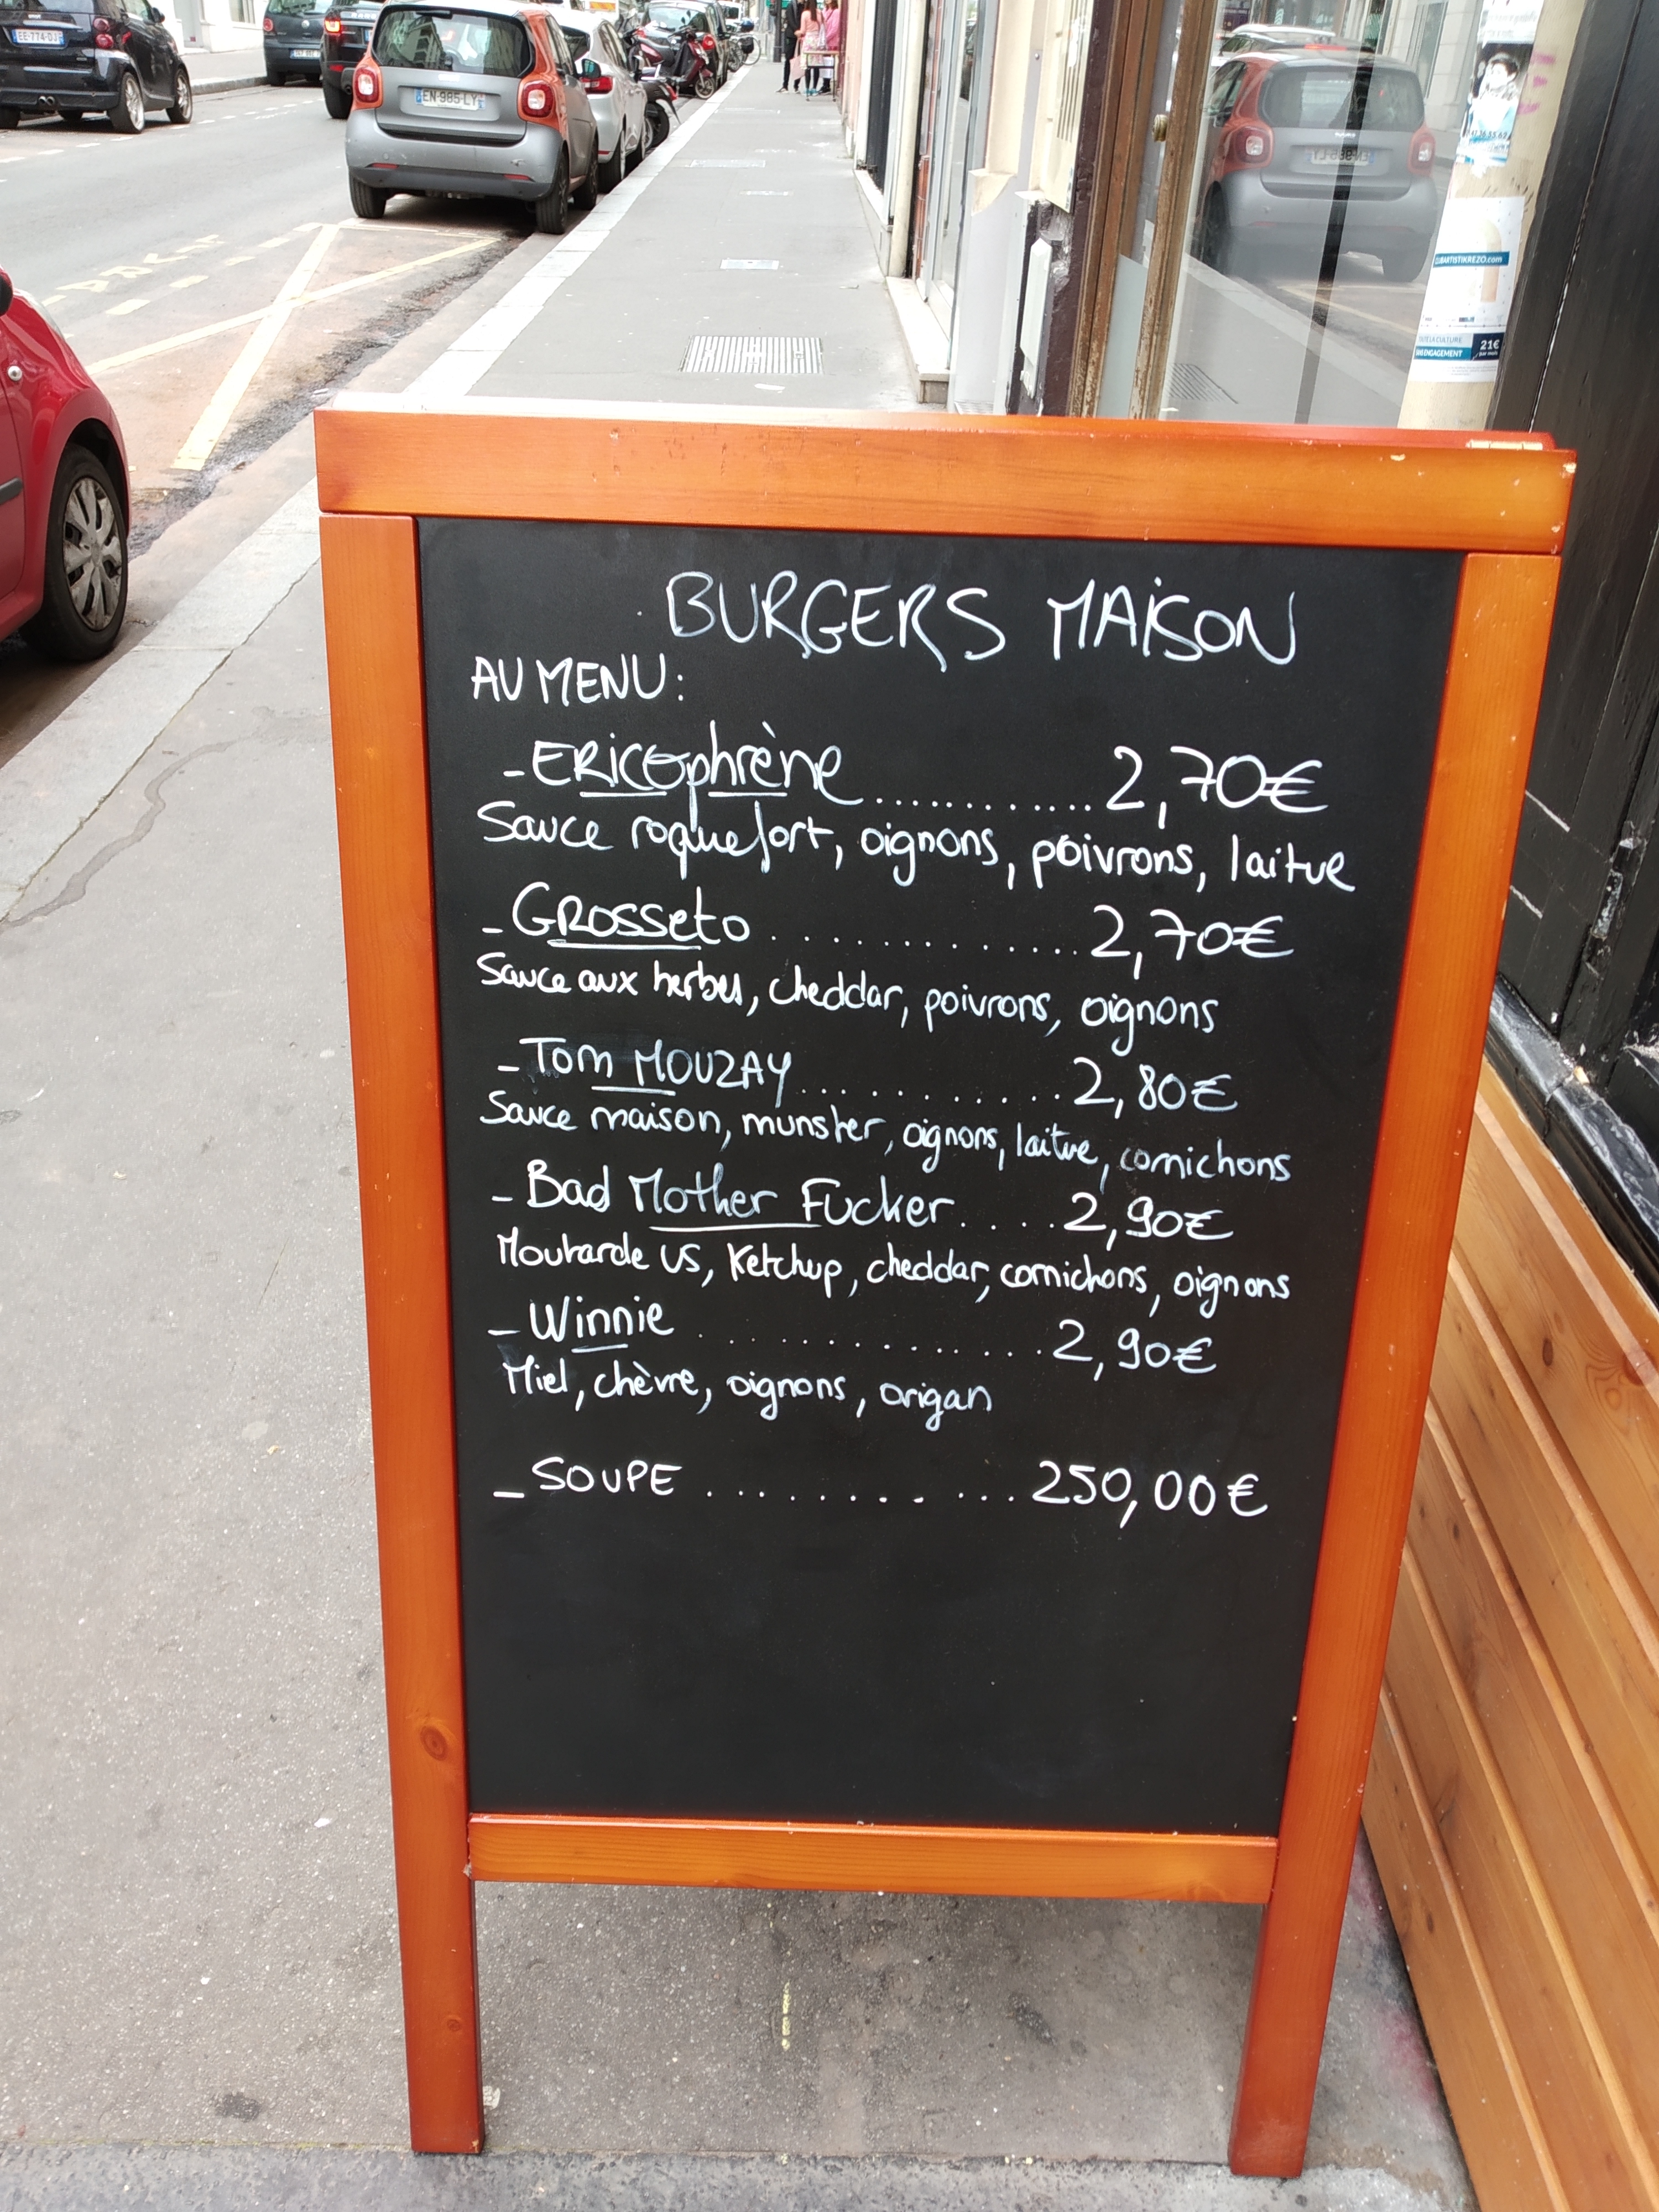 EE-774-DJ
EN-985-LY
BARTISTIKREZO.com
LA CULTURE
ENGAGEMENT
21€
par mois
BURGERS MAISON
AU MENU:
- ERICOphrène............ 2,70€
Sauce roquefort, oignons, poivrons, laitue
- GROSSETO.............. 2,70€
Sauce aux herbes, cheddar, poivrons, oignons
- Tom MOUZAY............ 2,80€
Sauce maison, munster, oignons, laitue, cornichons
- Bad Mother Fucker.... 2,90€
Moutarde US, Ketchup, cheddar, cornichons, oignons
- Winnie ............. 2,90€
Miel, chèvre, oignons, origan
- SOUPE ........... 250,00€